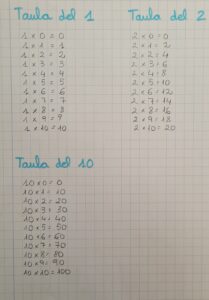 Taula del 1
1 x 0 = 0
1 x 1 = 1
1 x 2 = 2
1 x 3 = 3
1 x 4 = 4
1 x 5 = 5
1 x 6 = 6
1 x 7 = 7
1 x 8 = 8
1 x 9 = 9
1 x 10 = 10
Taula del 2
2 x 0 = 0
2 x 1 = 2
2 x 2 = 4
2 x 3 = 6
2 x 4 = 8
2 x 5 = 10
2 x 6 = 12
2 x 7 = 14
2 x 8 = 16
2 x 9 = 18
2 x 10 = 20
Taula del 10
10 x 0 = 0
10 x 1 = 10
10 x 2 = 20
10 x 3 = 30
10 x 4 = 40
10 x 5 = 50
10 x 6 = 60
10 x 7 = 70
10 x 8 = 80
10 x 9 = 90
10 x 10 = 100